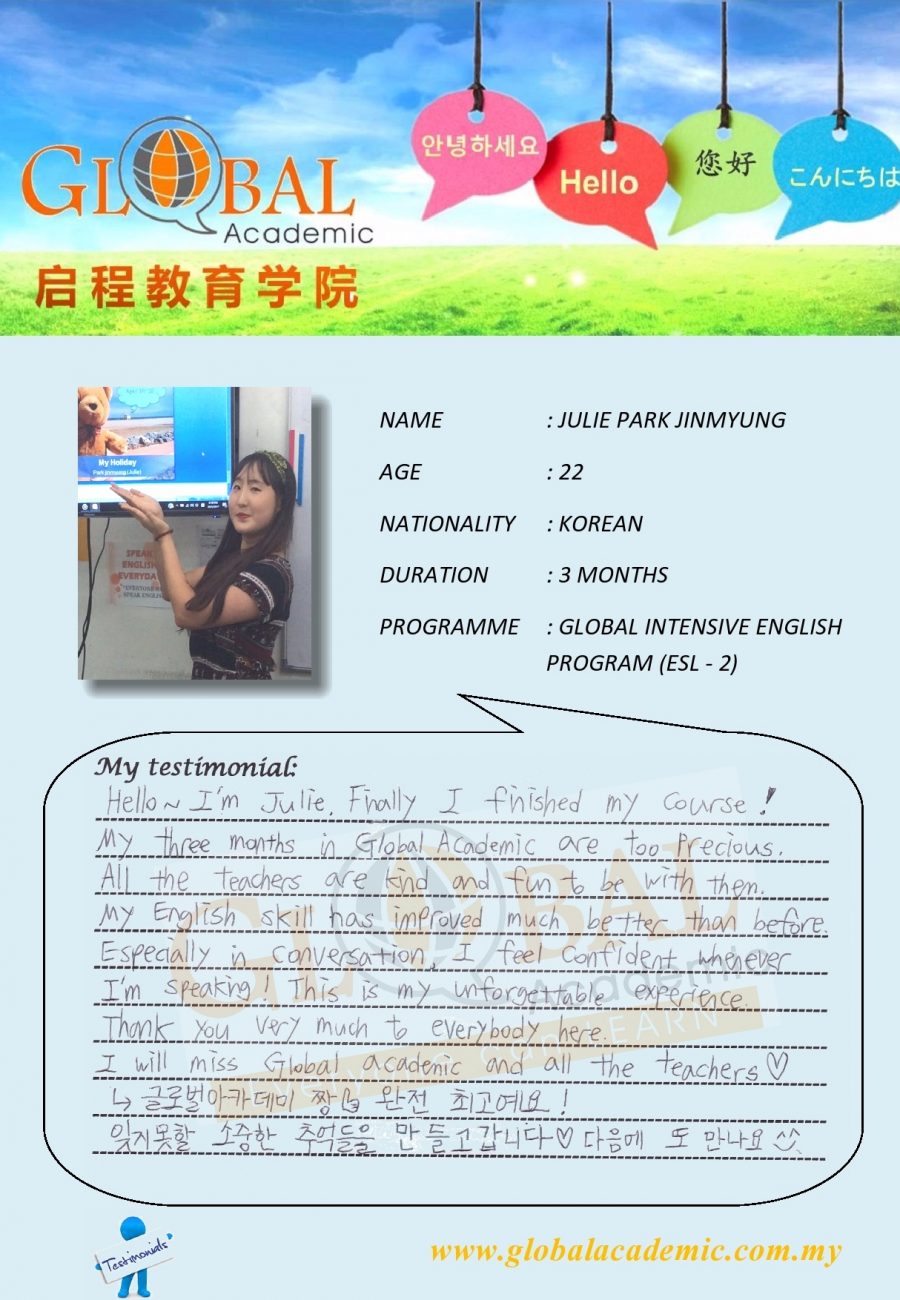 안녕하세요
Hello
您好
こんにちは
GLOBAL
Academic
启程教育学院
My Holiday
Park Jinmyung (Julie)
SPEAK
ENGLISH
EVERYDAY
EVERYONE
SPEAK ENGLISH
NAME : JULIE PARK JINMYUNG
AGE : 22
NATIONALITY : KOREAN
DURATION : 3 MONTHS
PROGRAMME : GLOBAL INTENSIVE ENGLISH
PROGRAM (ESL - 2)
My testimonial:
Hello~ I'm Julie. Finally I finished my course!
My three months in Global Academic are too precious.
All the teachers are kind and fun to be with them.
My English skill has improved much better than before.
Especially in conversation, I feel confident whenever
I'm speaking! This is my unforgettable experience.
Thank you very much to everybody here.
I will miss Global academic and all the teachers♡
↳ 글로벌아카데미 짱👍 완전 최고예요!
잊지못할 소중한 추억들을 만들고갑니다♡ 다음에 또 만나요^^
GLOBAL
Academic
Everyone can LEARN
Testimonials
www.globalacademic.com.my